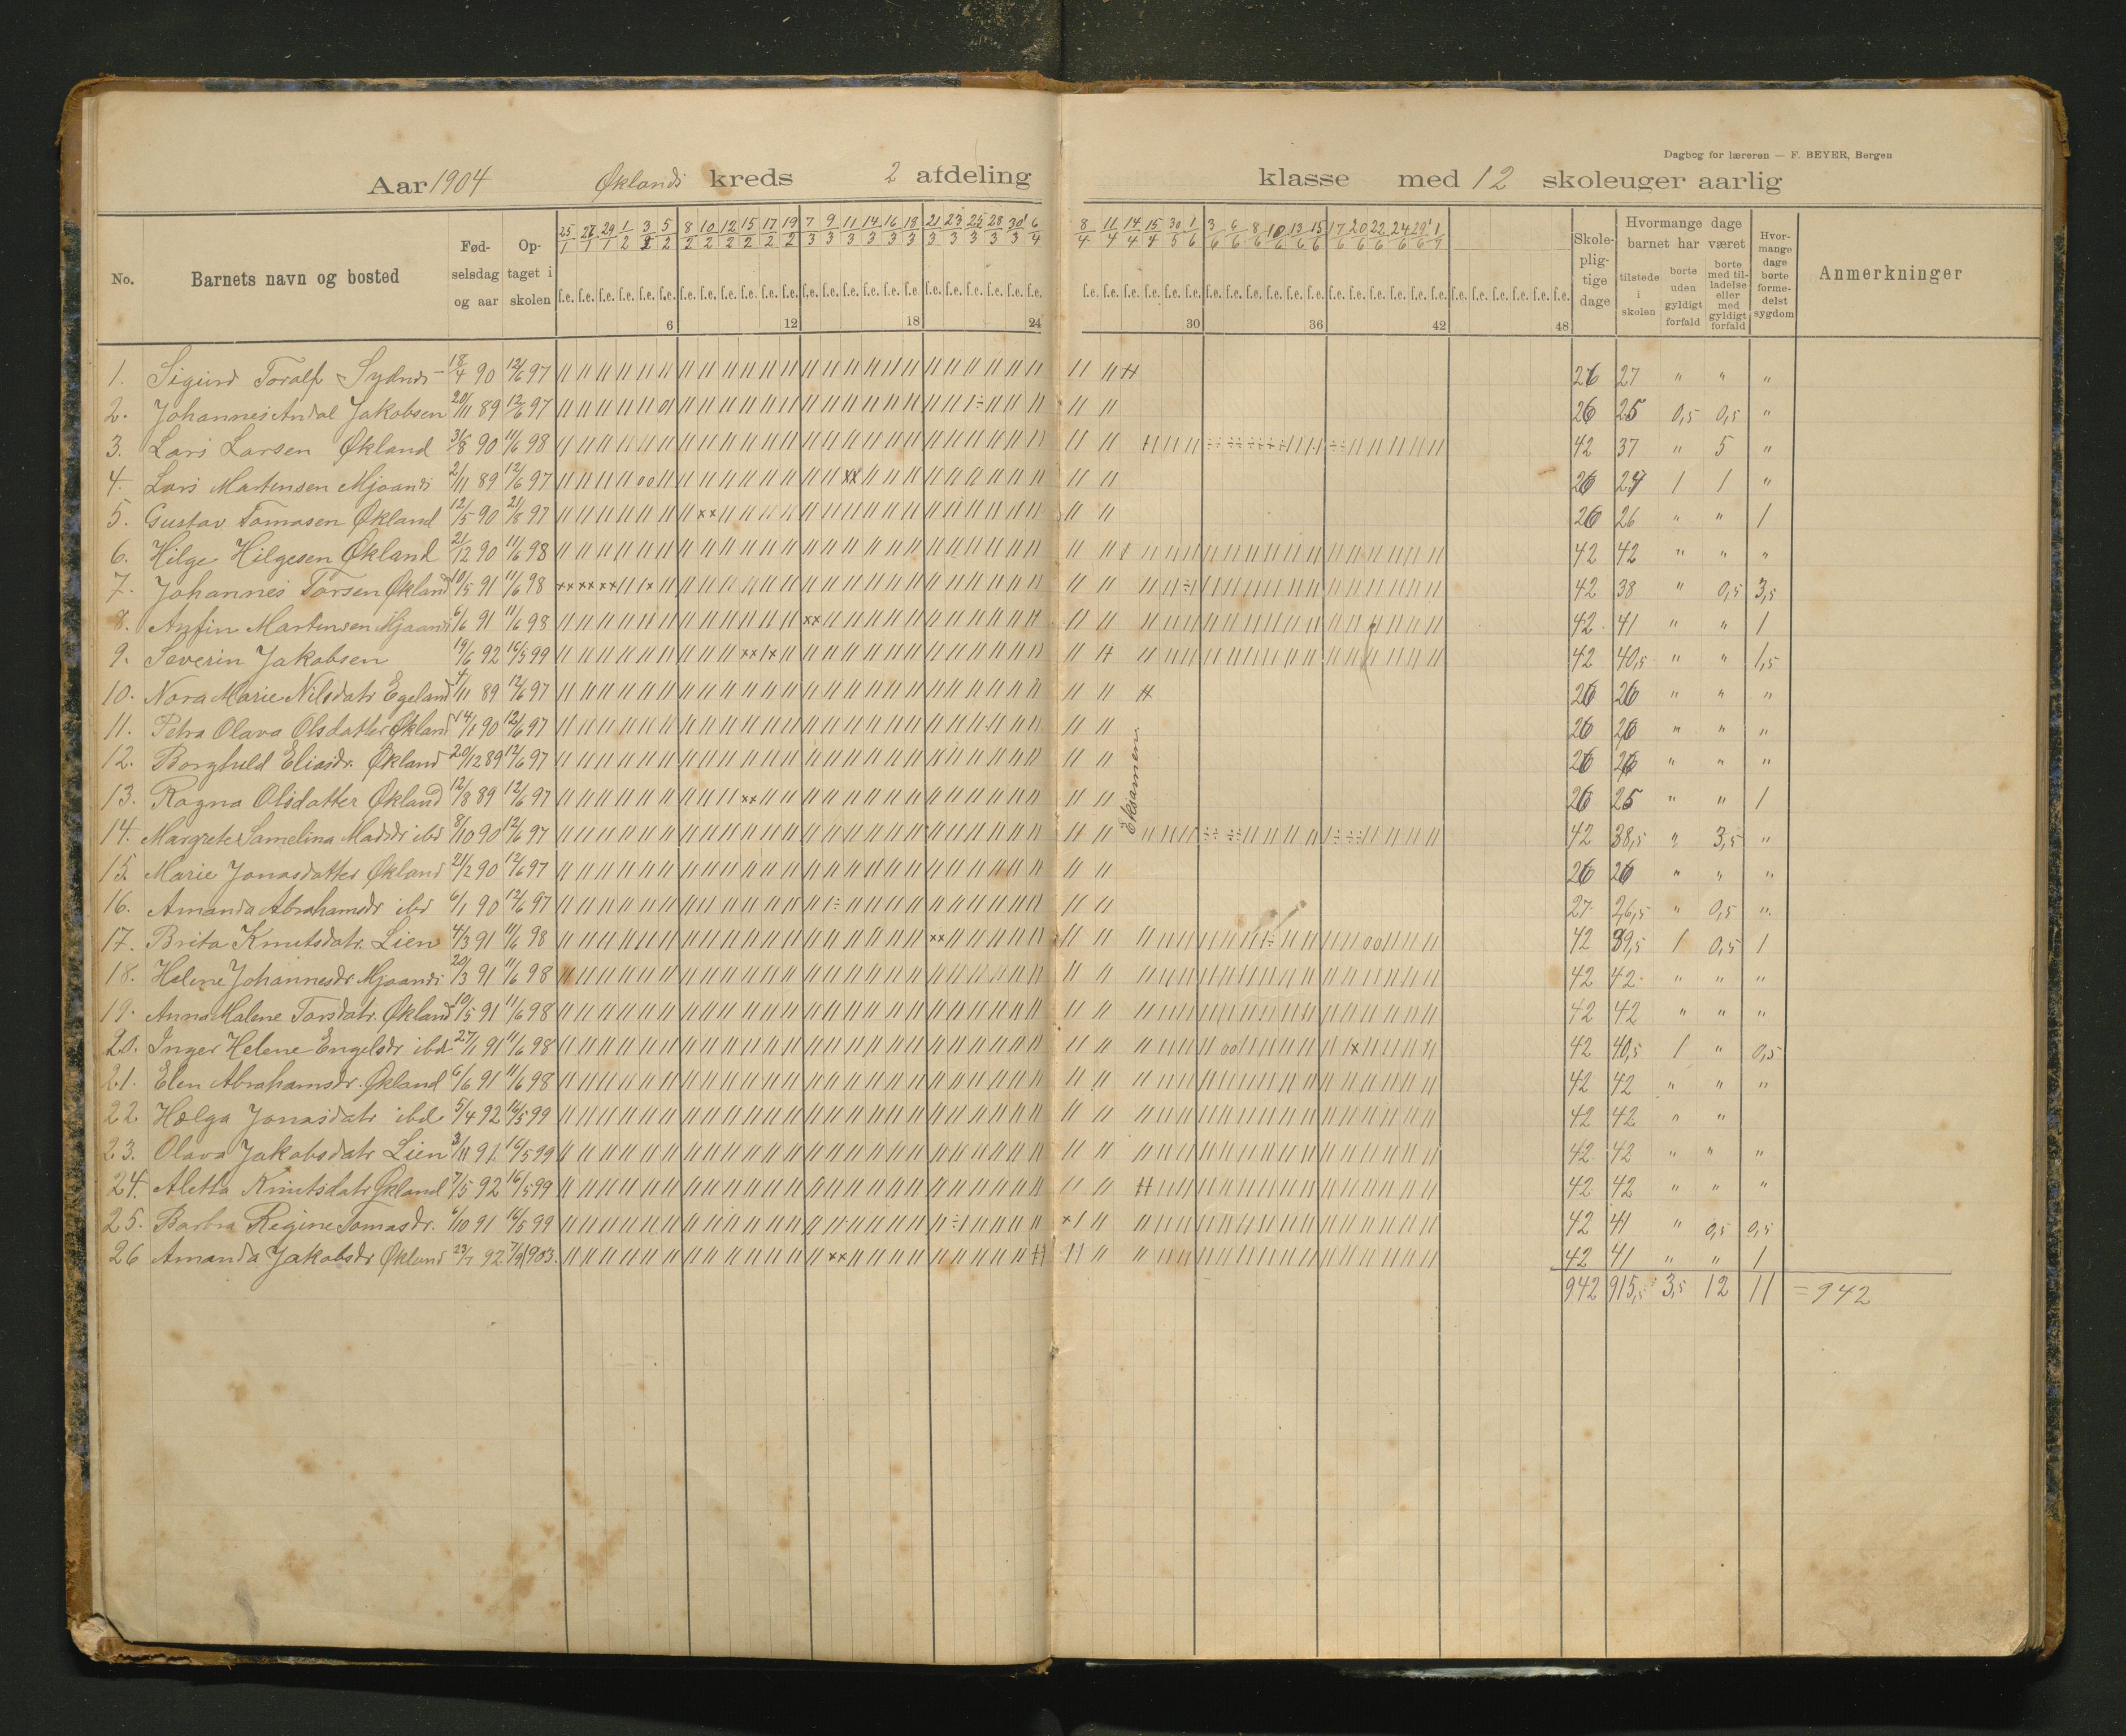 Dagbog for læreren — F. BEYER, Bergen
Aar 1904 Øklands kreds 2 afdeling klasse med 12 skoleuger aarlig
No. Barnets navn og bosted Fødselsdag og aar Optaget i skolen Skolepligtige dage Hvormange dage barnet har været tilstede i skolen borte uden gyldigt forfald borte med tilladelse eller med gyldigt forfald Hvormange dage borte formedelst sygdom Anmerkninger
25/1 27/1 29/1 1/2 3/2 5/2 8/2 10/2 12/2 15/2 17/2 19/2 7/3 9/3 11/3 14/3 16/3 18/3 21/3 23/3 25/3 28/3 30/3 6/4 8/4 11/4 14/4 15/4 30/5 1/6 3/6 6/6 8/6 10/6 13/6 15/6 17/6 20/6 22/6 24/6 29/6
6 12 18 24 30 36 42 48
1. Sigurd Toralf Sydnes 18/4 90 12/6 97 26 27 " " "
2. Johannes Andal Jakobsen 20/11 89 12/6 97 26 25 0,5 0,5 "
3. Lars Larsen Økland 31/8 90 11/6 98 42 37 " 5 "
4. Lars Martensen Mjoanes 2/11 89 12/6 97 26 24 1 1 "
5. Gustav Tomasen Økland 12/5 90 21/8 97 26 26 " " 1
6. Hilge Hilgesen Økland 21/12 90 11/6 98 42 42 " " "
7. Johannes Torsen Økland 10/5 91 11/6 98 42 38 " 0,5 3,5
8. Anfin Martensen Mjaanes 6/6 91 11/6 98 42 41 " " 1
9. Severin Jakobsen 19/6 92 16/5 99 42 40,5 " " 1,5
10. Nora Marie Nilsdatr Egeland 4/11 89 12/6 97 26 26 " " "
11. Petra Olava Olsdatter Økland 14/1 90 12/6 97 26 26 " " "
12. Borghild Eliasdr. Økland 20/12 89 12/6 97 26 26 " " "
13. Ragna Olsdatter Økland 12/8 89 12/6 97 26 25 " " 1
Eksamen
14. Margrete Samelina Madsdr ibd 8/10 90 12/6 97 42 38,5 " 3,5 "
15. Marie Jonasdatter Økland 21/2 90 12/6 97 26 26 " " "
16. Amanda Abrahamsdr ibd 6/1 90 12/6 97 27 26,5 " 0,5 "
17. Brita Knutsdatr. Lien 4/3 91 11/6 98 42 39,5 1 0,5 1
18. Helene Johannesdr Mjaanes 20/3 91 11/6 98 42 42 " " "
19. Anna Malene Torsdatr. Økland 10/5 91 11/6 98 42 42 " " "
20. Inger Helene Engelsdr ibd 27/1 91 11/6 98 42 40,5 1 " 0,5
21. Elen Abrahamsdr. Økland 6/6 91 11/6 98 42 42 " " "
22. Hælga Jonasdatr ibd 5/4 92 16/5 99 42 42 " "
23. Olava Jakobsdatr Lien 3/11 91 16/5 99 42 42 " " "
24. Aletta Knutsdatr Økland 7/5 92 16/5 99 42 42 " " "
25. Barbra Regine Tomasdr. 6/10 91 16/5 99 42 41 " 0,5 0,5
26 Amanda Jakobsdr Økland 23/7 92 7/9 1903 42 41 " " 1
942 915,5 3,5 12 11 = 942